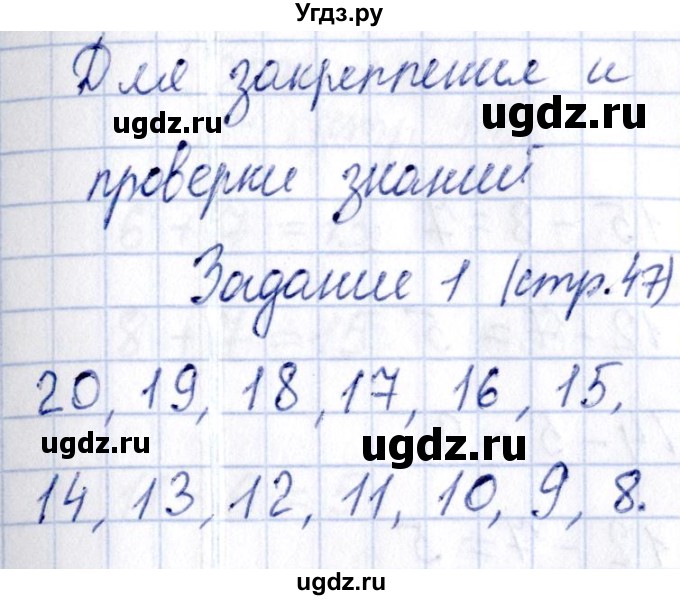 Угдз.ру
Для закрепления и
ugdz.ru ugdz.ru
проверки знаний
Задание 1 (стр.47)
20, 19, 18, 17, 16, 15,
ugdz.ru ugdz.ru
14, 13, 12, 11, 10, 9, 8.
ugdz.ru